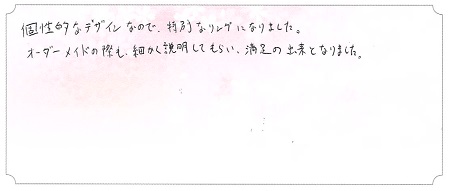 個性的なデザインなので、特別なリングになりました。
オーダーメイドの際も、細かく説明してもらい、満足の出来となりました。